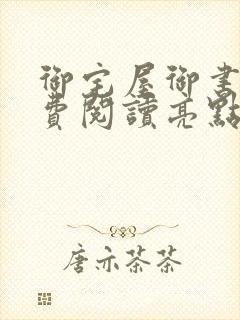 御宅屋御書
費閱讀亮點
唐亦茶茶